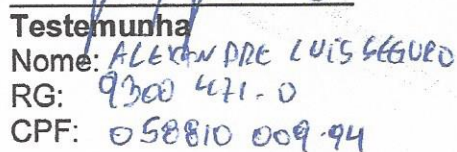 Testemunha
Nome: ALEXANDRE LUIS SEGURO
RG: 9300 471-0
CPF: 058810 009-94